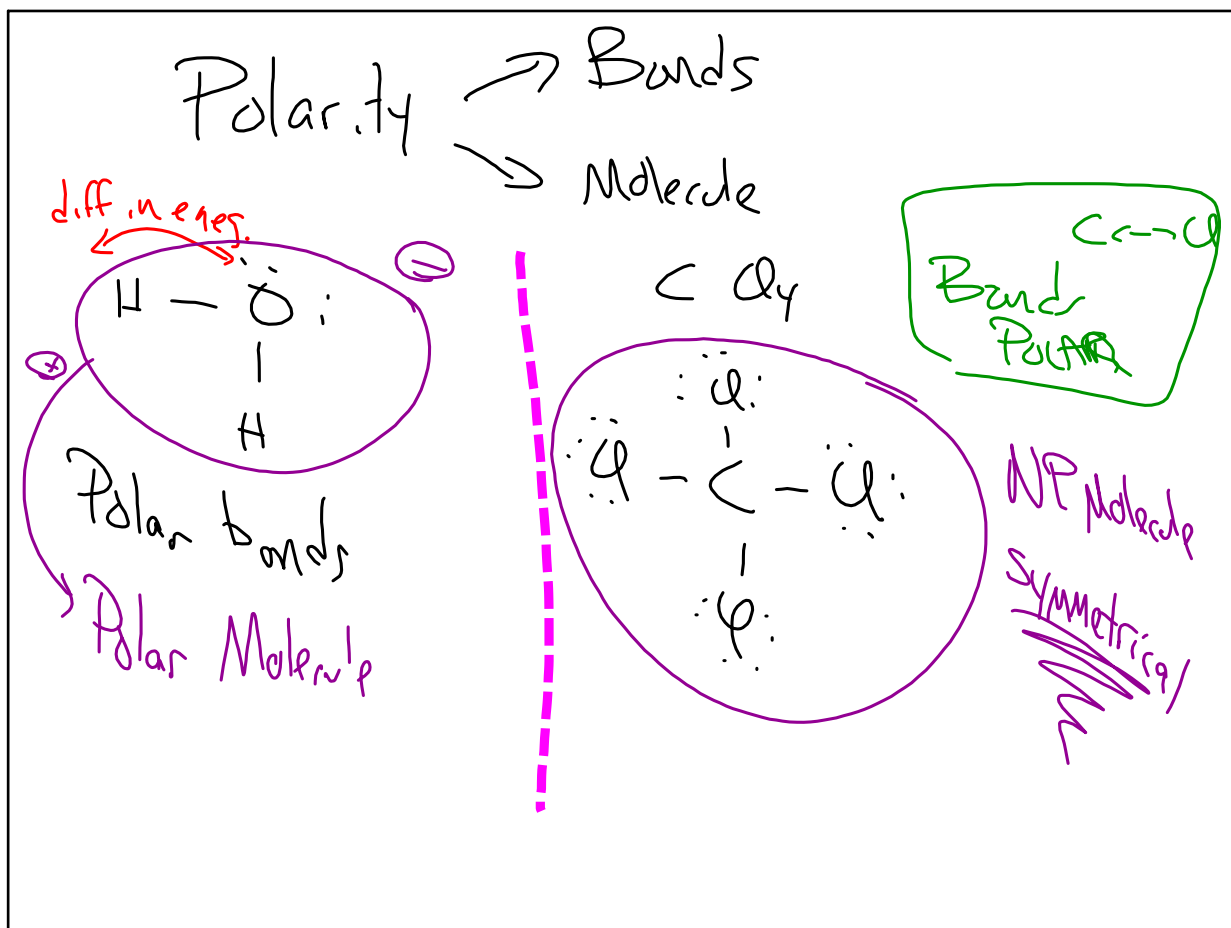 Polarity
Bonds
Molecule
diff. in eneg.
H — O :
H
+
−
Polar bonds
Polar Molecule
C Cl4
Cl
Cl — C — Cl
Cl
C ↔ Cl
Bonds
POLAR
NP Molecule
Symmetrical